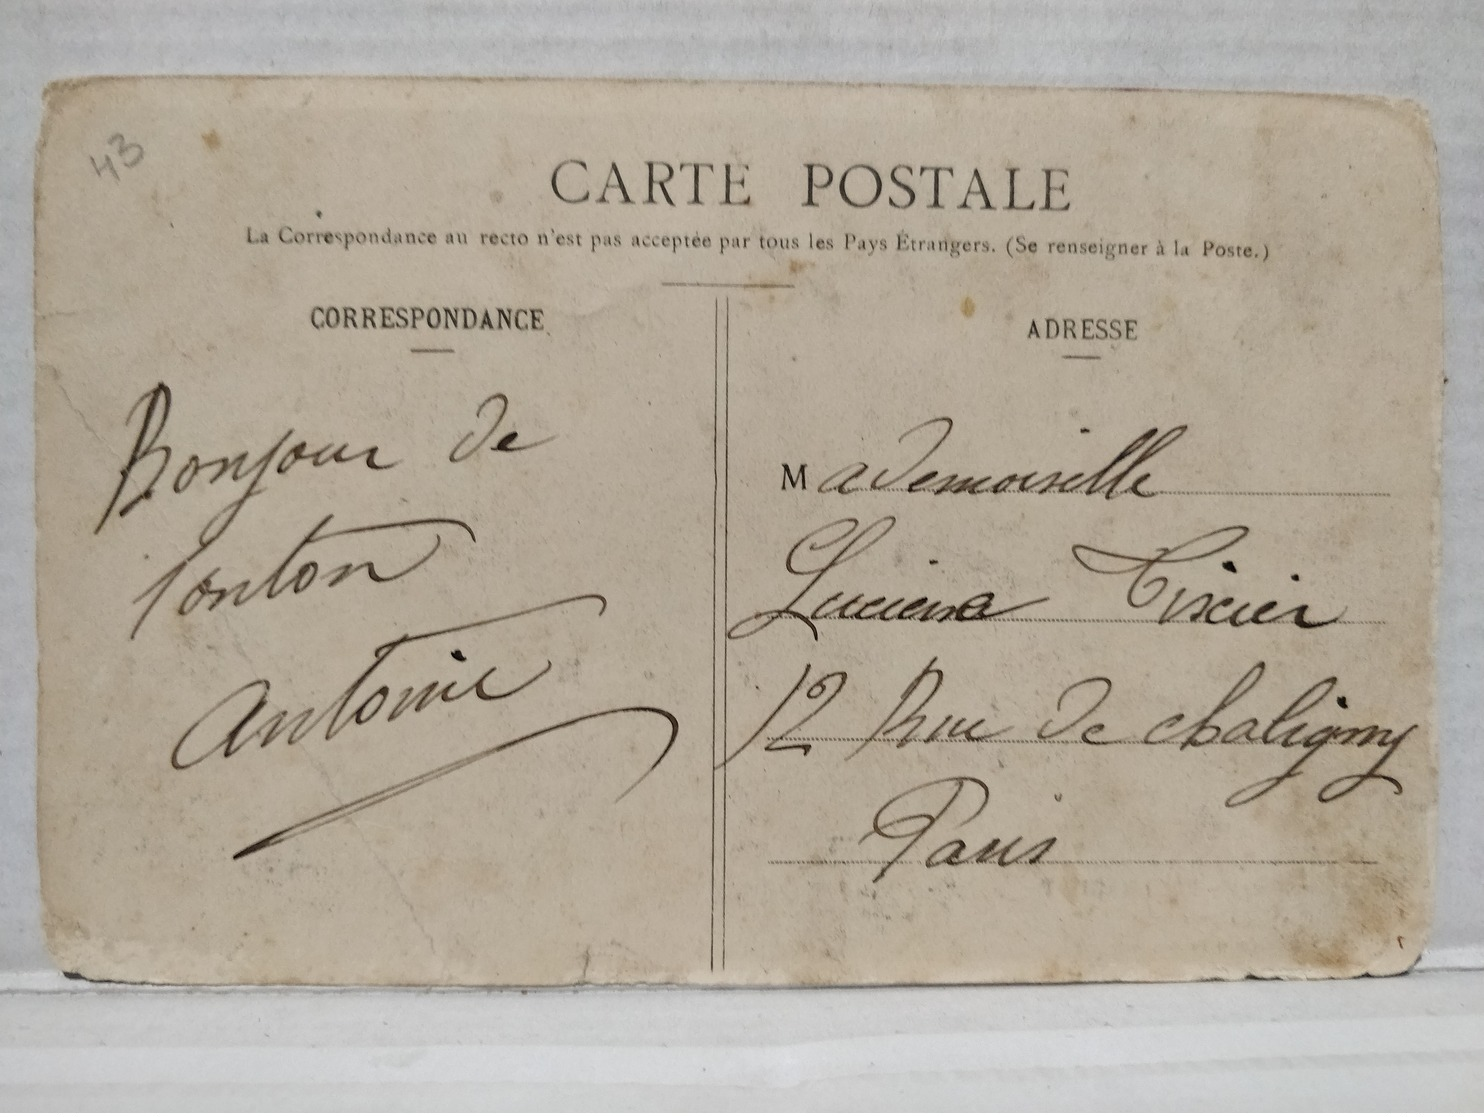 43
CARTE POSTALE
La Correspondance au recto n'est pas acceptée par tous les Pays Étrangers. (Se renseigner à la Poste.)
CORRESPONDANCE
Bonjour de
Tonton
Antoine
ADRESSE
Mademoiselle
Lucienne Tixier
12 Rue de chaligny
Paris